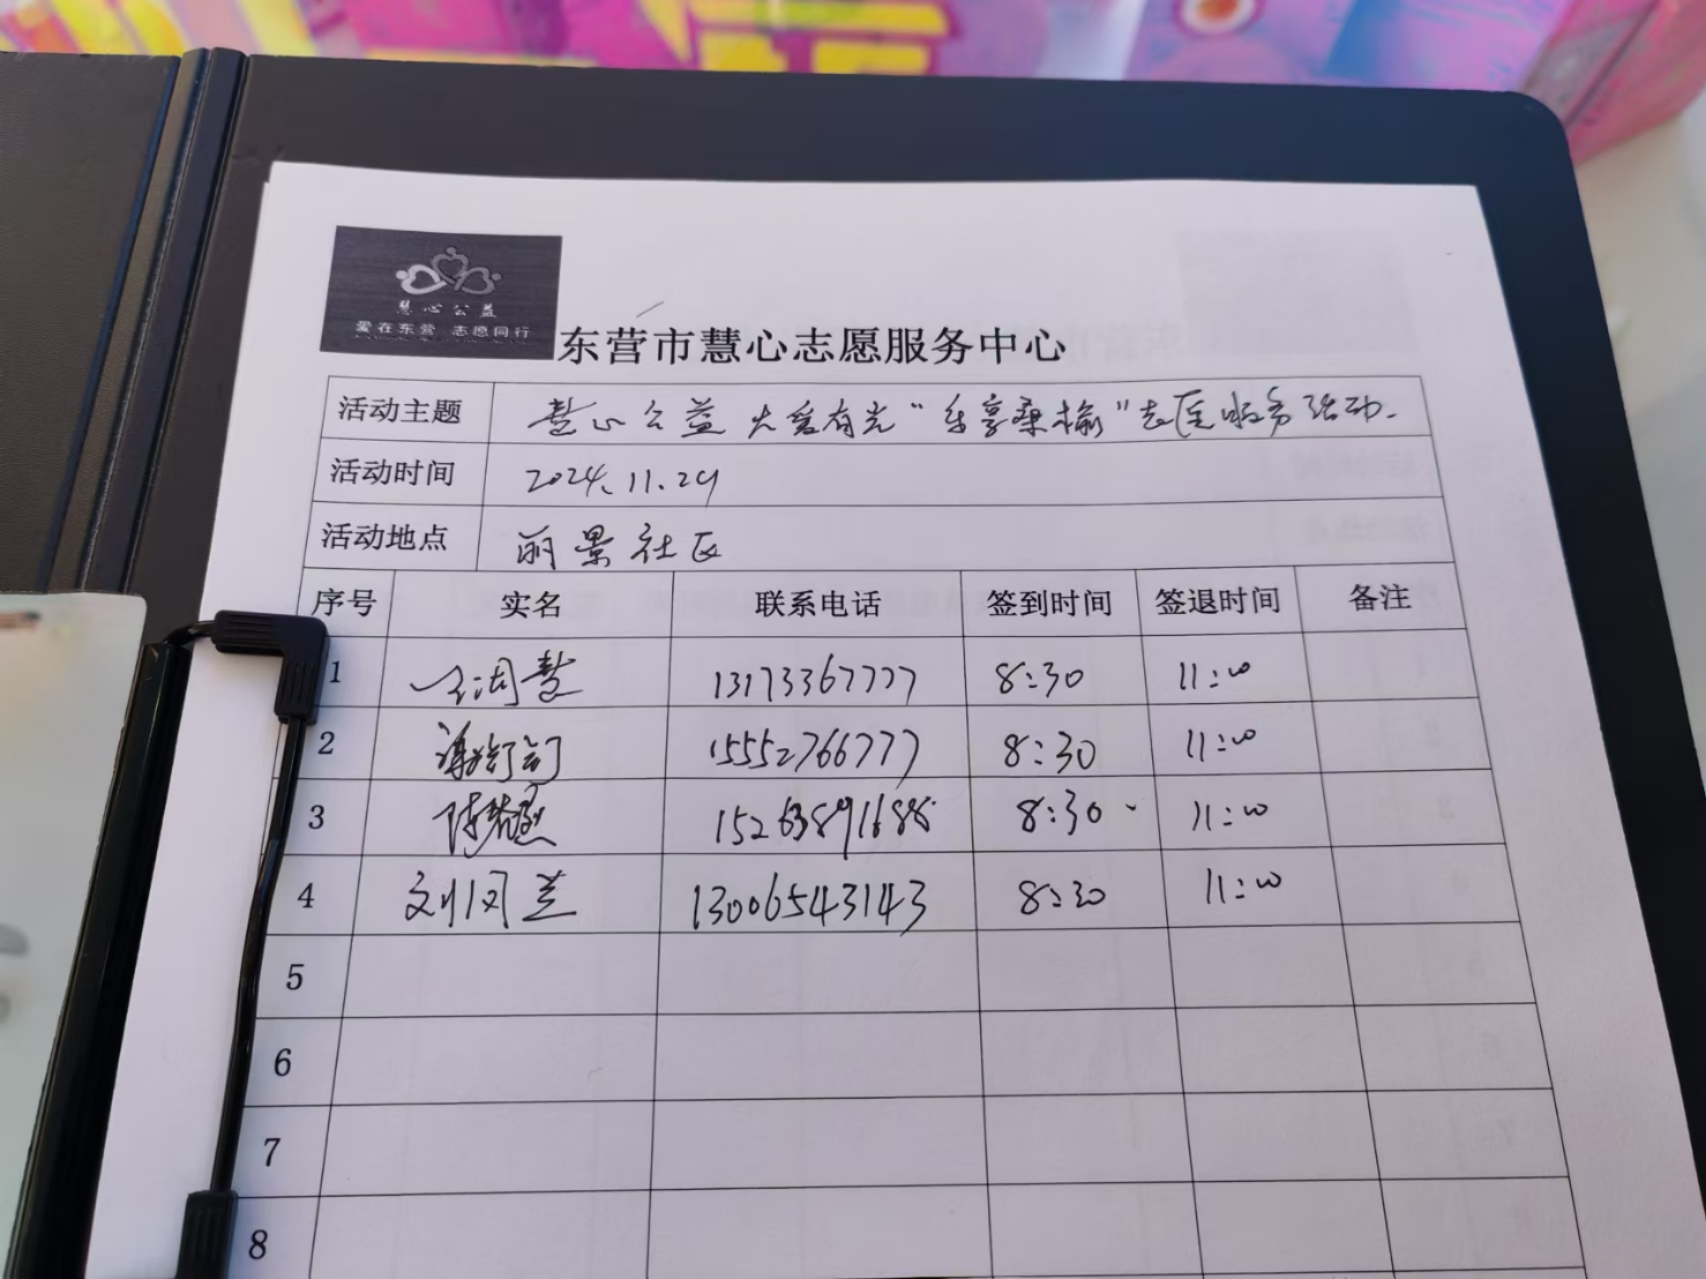 慧心公益
爱在东营 志愿同行
东营市慧心志愿服务中心
活动主题 慧心公益 火爱有光“乐享桑榆”志愿服务活动.
活动时间 2024.11.29
活动地点 丽景社区
序号 实名 联系电话 签到时间 签退时间 备注
1 慧 13173367777 8:30 11:00
2 15552766777 8:30 11:00
3 陈 15263891688 8:30 11:00
4 刘兰 13006543143 8:30 11:00
5
6
7
8